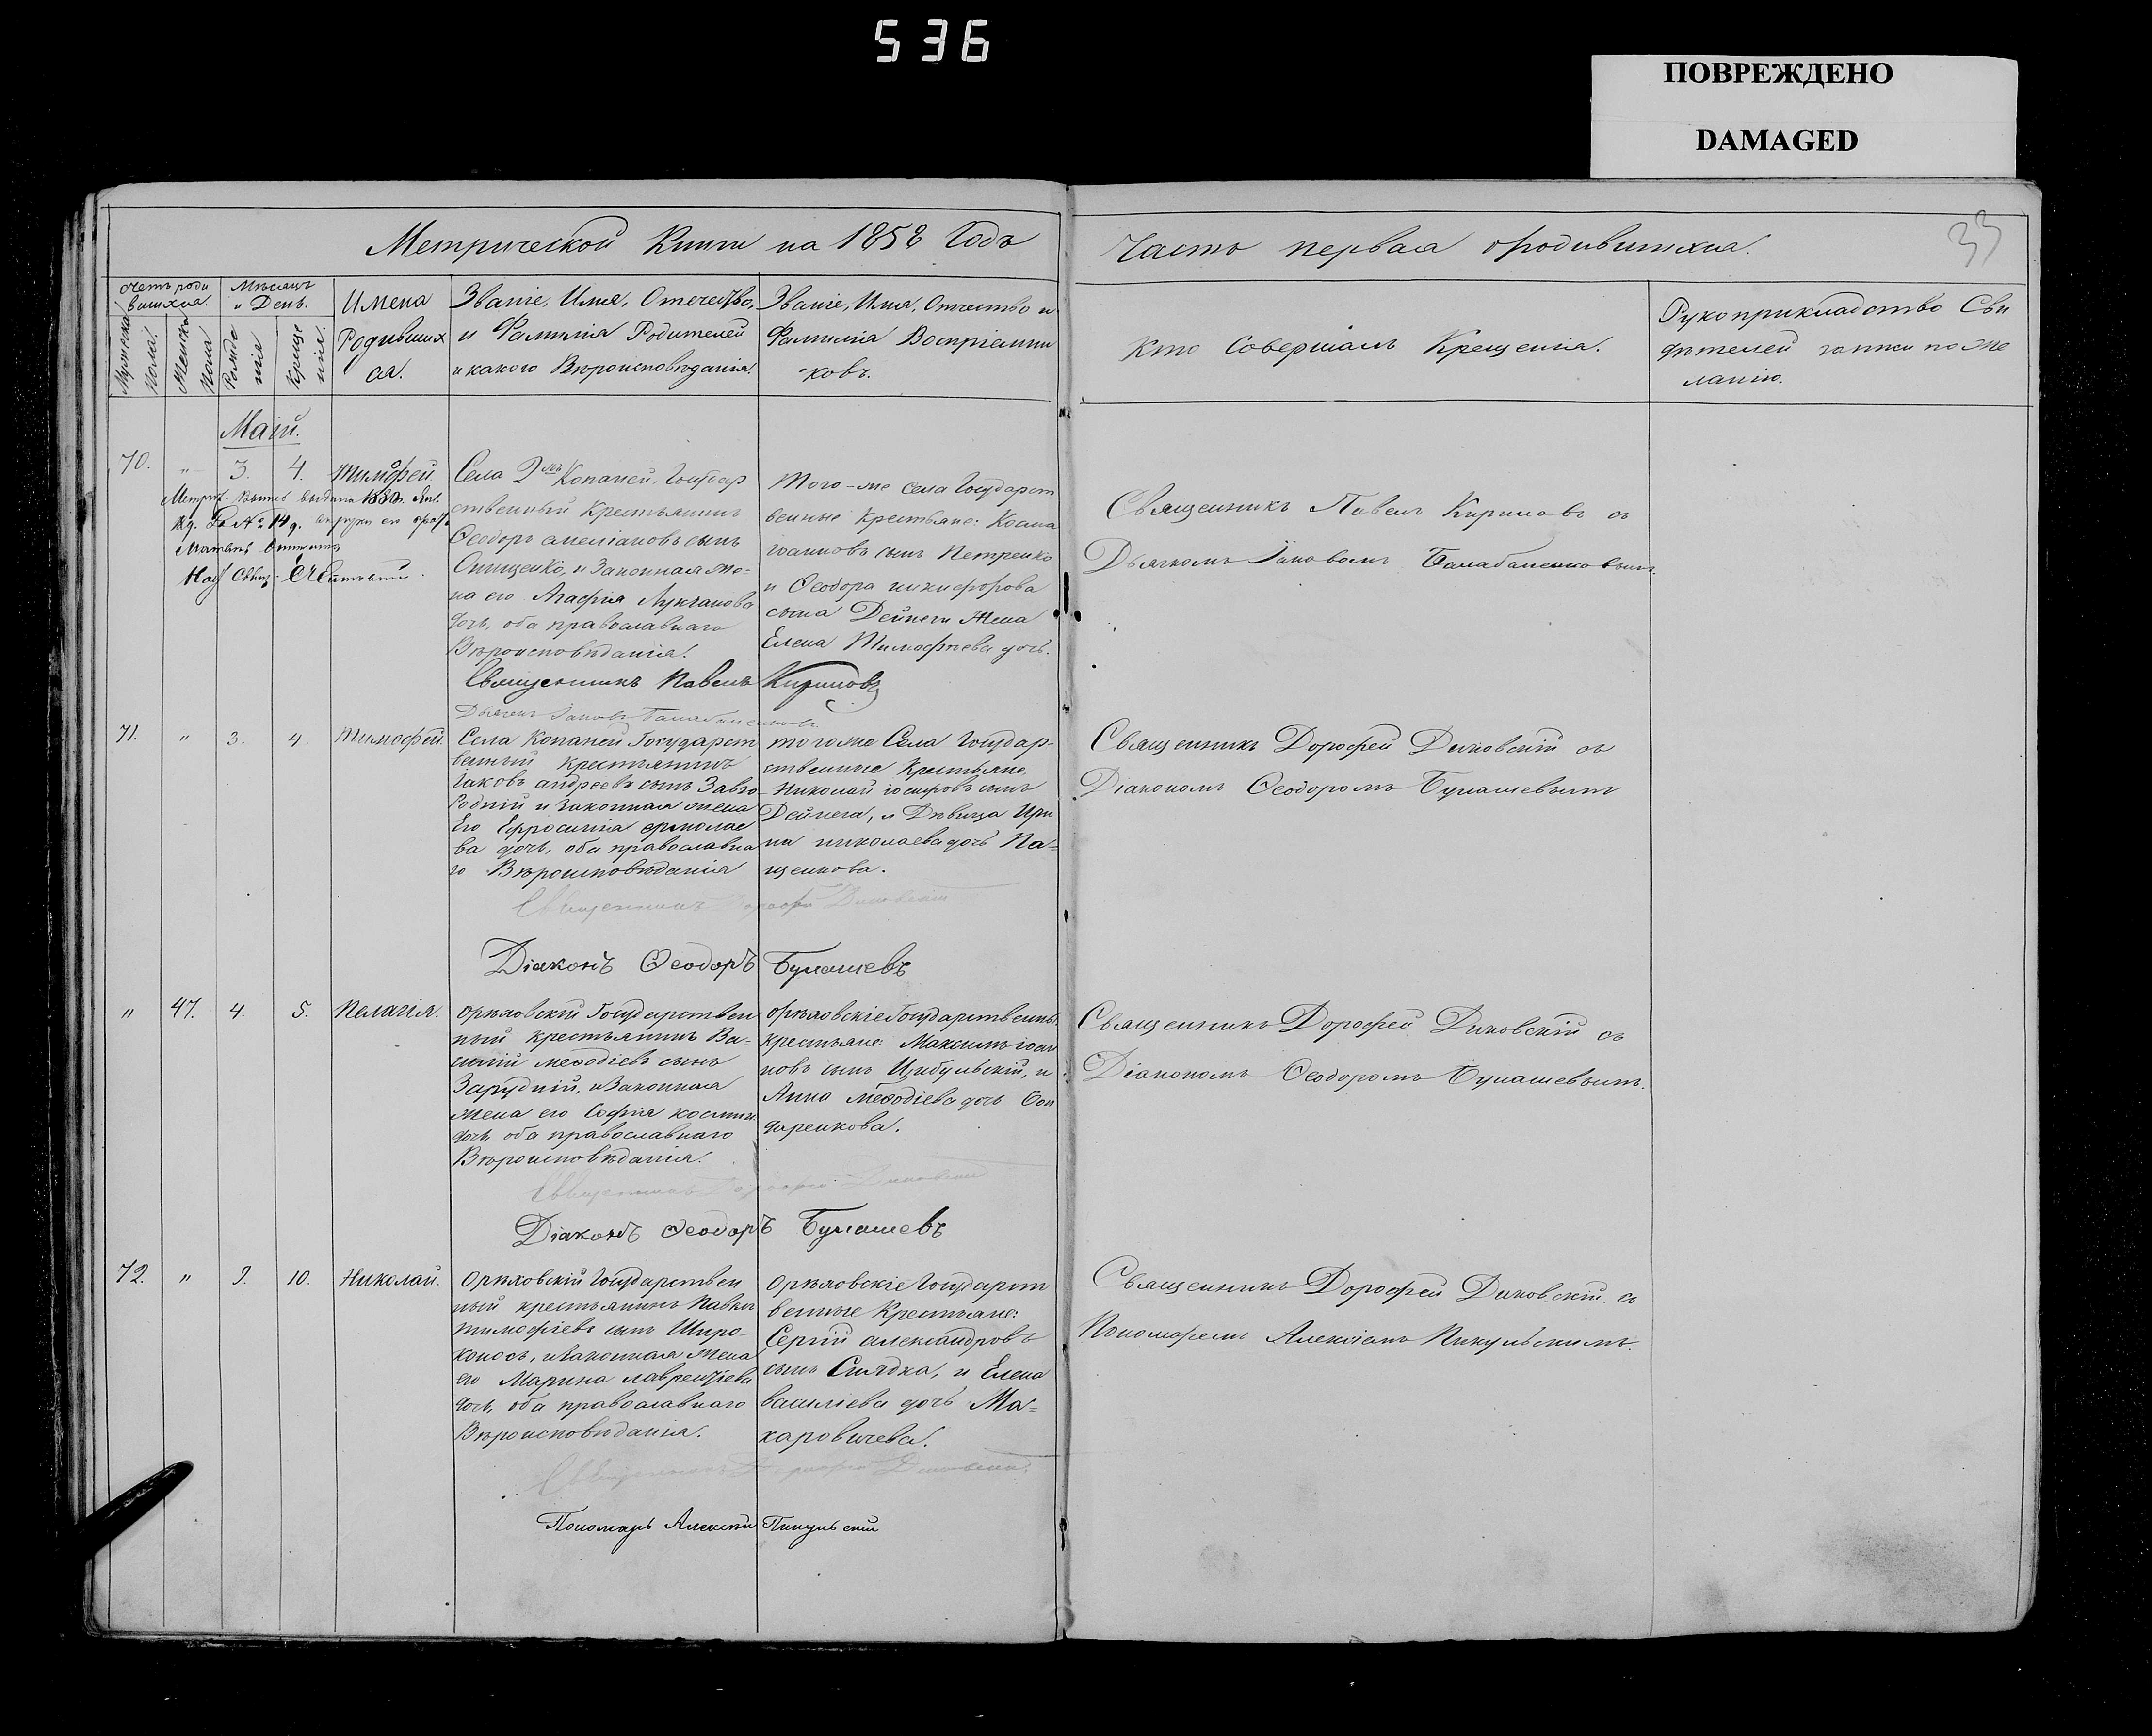 536
ПОВРЕЖДЕНО
DAMAGED
Метрической Книги на 1858 Годъ
Часть первая о родившихся.
33
Счетъ роди
вшихся.
Мужеска
Пола.
Женска
Пола
Мѣсяцъ
и День.
Рожде
нія
Креще
нія.
Имена
Родивших
ся.
Званіе, Имя, Отечество,
и Фамилія Родителей
и какого Вѣроисповѣданія.
Званіе, Имя, Отчество и
Фамилія Воспріемни
ковъ.
Кто Совершалъ Крещенія.
Рукоприкладство Сви
дѣтелей записи по же
ланію.
Маій.
70. " 3. 4. Тимофей.
Села 2хъ Копаней, Государ
ственный Крестьянинъ
Ѳеодоръ емеліановъ сынъ
Онищенко, и Законная же-
на его Агафія Лукіанова
дочь, оба православнаго
Вѣроисповѣданія.
Того-же села Государст
венные Крестьяне: Косма
іоанновъ сынъ Петренко
и Ѳеодора никифорова
сына Дейнеги Жена
Елена Тимофѣева дочь.
Священникъ Павелъ Кириловъ съ
Дьячкомъ Іаковомъ Балабаненковымъ.
Священникъ Павелъ Кириловъ
Дьячекъ Іаковъ Балабаненковъ
71. " 3. 4. Тимофей.
Села Копаней Государст
венный крестьянинъ
Іаковъ андреевъ сынъ Завго
родній и законная жена
Его Ефросинія ермолае
ва дочь, оба православна
го Вѣроисповѣданія
того же Села Государ-
ственные Крестьяне,
Николай іосифовъ сынъ
Дейнега, и Дѣвица Ири
на николаева дочь Па-
щенкова.
Священникъ Дорофей Диковскій съ
Діакономъ Ѳеодоромъ Булашевымъ
Священникъ Дорофей Диковскій
Діаконъ Ѳеодоръ Булашевъ
" 47. 4. 5. Пелагія.
Орѣховскій Государствен
ный крестьянинъ Ва-
силій меѳодіевъ сынъ
Зарудній, и Законная
жена его Софія космин.
дочь оба православнаго
Вѣроисповѣданія.
Орѣховскіе Государственны.
крестьяне: Максимъ іоан
новъ сынъ Цибульскій, и
Анна меѳодіева дочь Бон
даренкова.
Священникъ Дорофей Диковскій съ
Діакономъ Ѳеодоромъ Булашевымъ.
Священникъ Дорофей Диковскій
Діаконъ Ѳеодоръ Булашевъ
72. " 9. 10. Николай.
Орѣховскій Государствен
ный крестьянинъ Павелъ
тимофѣевъ сынъ Широ-
коносъ, и Законная жена
его Марина лаврентіева
дочь, оба православнаго
Вѣроисповѣданія.
Орѣховскіе Государст
венные Крестьяне:
Сергій александровъ
сынъ Сылдка, и Елена
василіева дочь Ма-
каровичева.
Священникъ Дорофей Диковскій съ
Пономаремъ Алексіемъ Пикульскимъ.
Священникъ Дорофей Диковскій
Пономарь Алексій Пикульскій